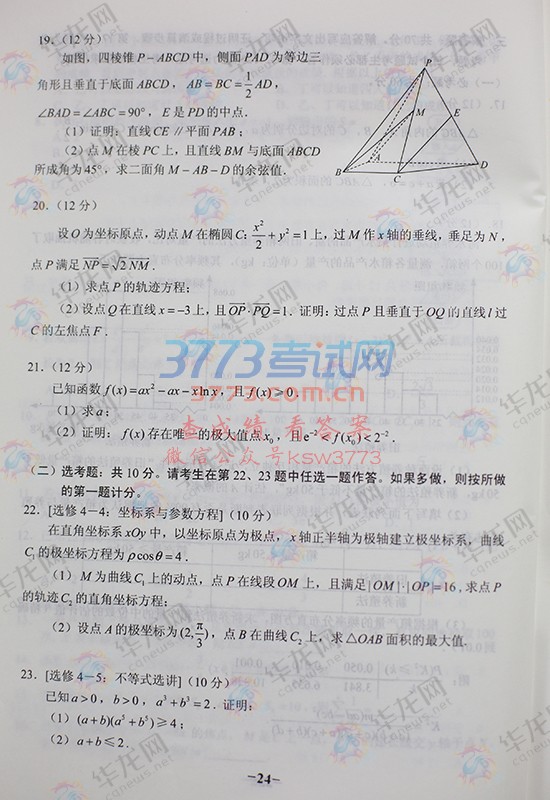 19. (12分)
如图，四棱锥P－ABCD中，侧面PAD为等边三
角形且垂直于底面ABCD，AB=BC=1/2AD，
∠BAD=∠ABC=90°，E是PD的中点.
(1)证明：直线CE∥平面PAB；
(2)点M在棱PC上，且直线BM与底面ABCD
所成角为45°，求二面角M－AB－D的余弦值.
P
M
E
A
B
C
D
20. (12分)
设O为坐标原点，动点M在椭圆C：x²/2+y²=1上，过M作x轴的垂线，垂足为N，
点P满足NP=√2NM.
(1)求点P的轨迹方程；
(2)设点Q在直线x=－3上，且OP·PQ=1. 证明：过点P且垂直于OQ的直线l过
C的左焦点F.
3773考试网
3773.com.cn
查成绩 看答案
微信公众号ksw3773
21. (12分)
已知函数f(x)=ax²－ax－xlnx，且f(x)≥0.
(1)求a；
(2)证明：f(x)存在唯一的极大值点x₀，且e⁻²<f(x₀)<2⁻².
(二)选考题：共10分。请考生在第22、23题中任选一题作答。如果多做，则按所做
的第一题计分。
22. [选修4－4：坐标系与参数方程](10分)
在直角坐标系xOy中，以坐标原点为极点，x轴正半轴为极轴建立极坐标系，曲线
C₁的极坐标方程为ρcosθ=4.
(1)M为曲线C₁上的动点，点P在线段OM上，且满足|OM|·|OP|=16，求点P
的轨迹C₂的直角坐标方程；
(2)设点A的极坐标为(2,π/3)，点B在曲线C₂上，求△OAB面积的最大值.
23. [选修4－5：不等式选讲](10分)
已知a>0，b>0，a³+b³=2. 证明：
(1)(a+b)(a⁵+b⁵)≥4；
(2)a+b≤2.
－24－
华龙网
cqnews.net